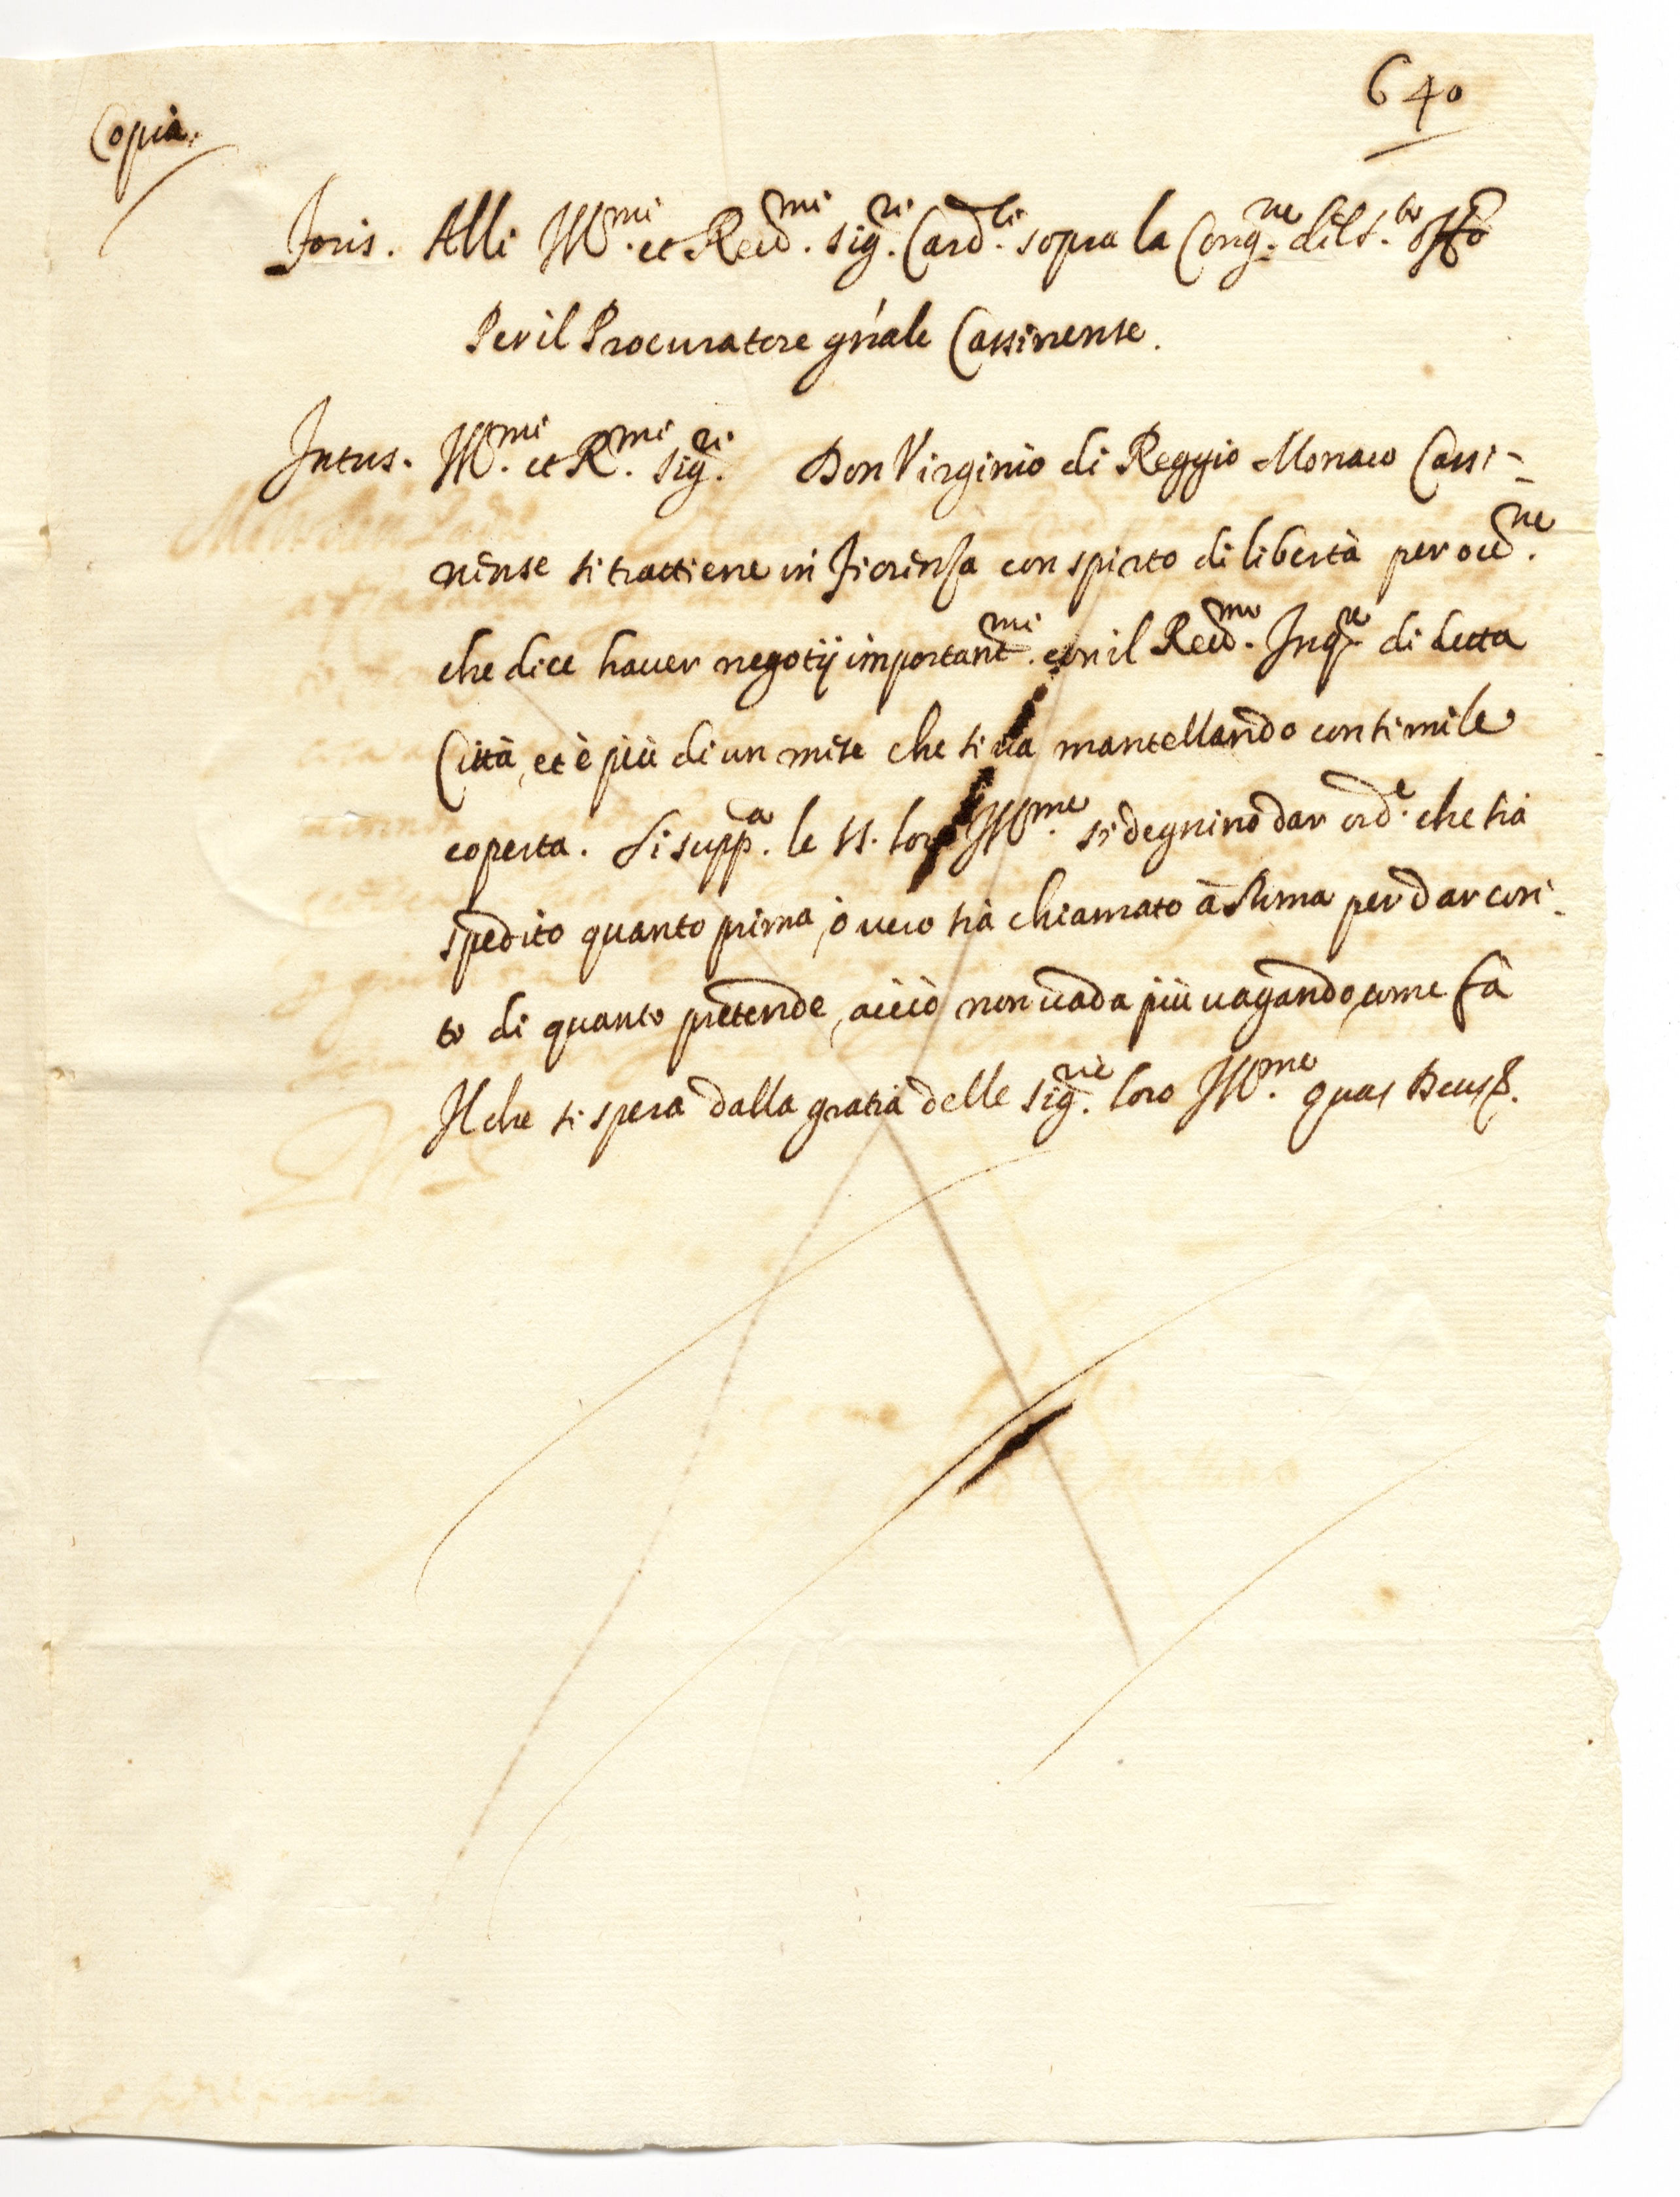 640
Copia.
Foris. Alli Ill.mi et Reu.mi Sig.ri Card.li sopra la Cong.ne del S.to Offo
Per il Procuratore gn'ale Cassinense.
Intus. Ill.mi et R.mi Sig.ri Don Virginio di Reggio Monaco Cassi-
nense si trattiene in Fiorenza con spirto di libertà per occ.ne
che dice hauer negotij important.mi con il Reu.mo Inq.re di detta
Città, et è più di un mese che si ua mantellando con simile
coperta. Si supp.a le SS. loro Ill.me si degnino dar ord.e che sia
spedito quanto prima, ò uero sia chiamato à Roma per dar con-
to di quanto pretende, acciò non uada più uagando, come fà
Il che si spera dalla gratia delle Sig.rie loro Ill.me quas Deus &.